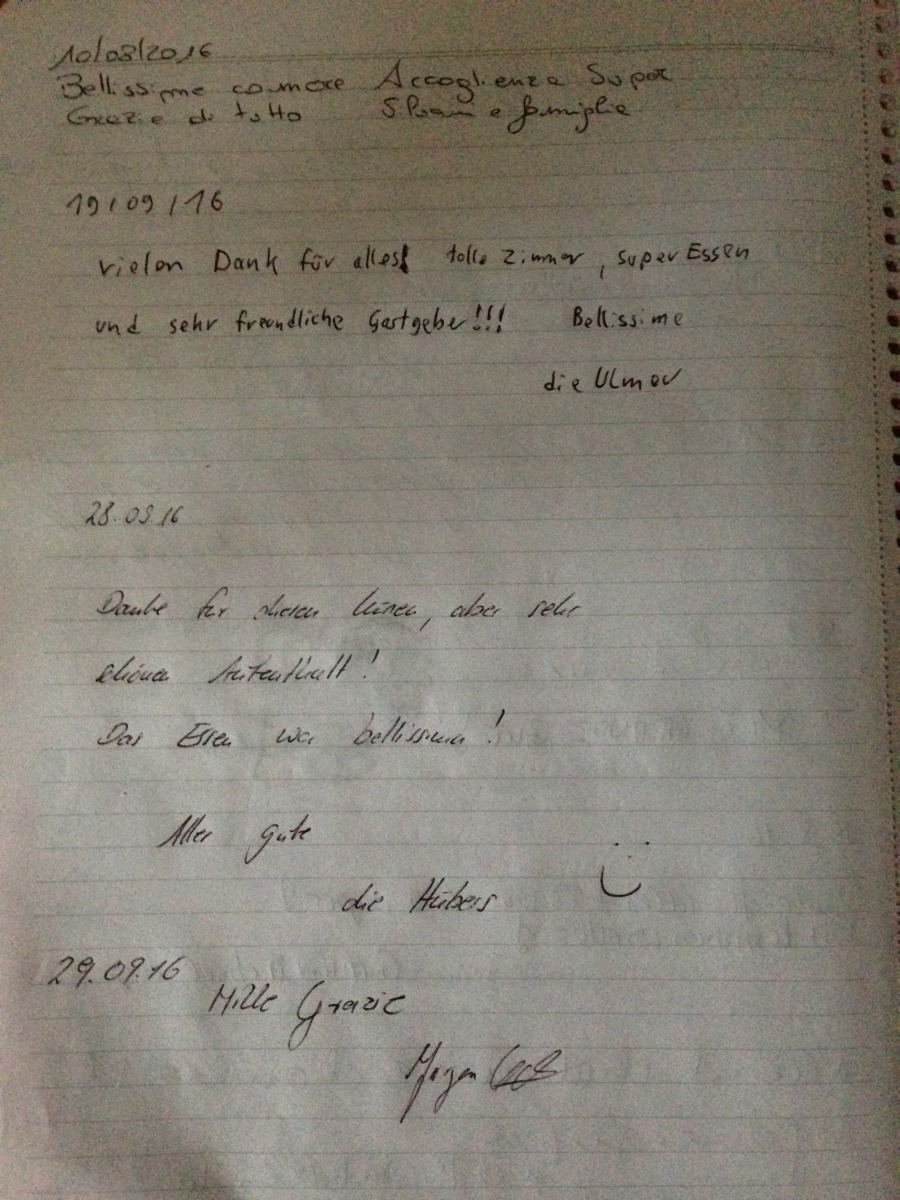 10/08/2016
Bellissime camere Accoglienza Super
Grazie di tutto e famiglia
19/09/16
vielen Dank für alles! tolle Zimmer, super Essen
und sehr freundliche Gastgeber!!! Bellissime
die Ulmer
28.09.16
Danke für diesen kurzen, aber sehr
schönen Aufenthalt!
Das Essen war bellissima!
Alles gute
die Hubers
29.09.16
Mille Grazie